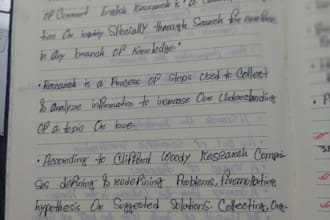 of Current English Research is a
tion or inquiry Specially through Search for new
In Any branch of knowledge."
• Research is a Process of steps Used to Collect
& analyze information to increase Our Understanding
of a topic or issue.
• According to Clifford Woody Research Compri-
ses defining & redefining Problems, Formulating
hypothesis Or Suggested Solutions. Collecting, Org-